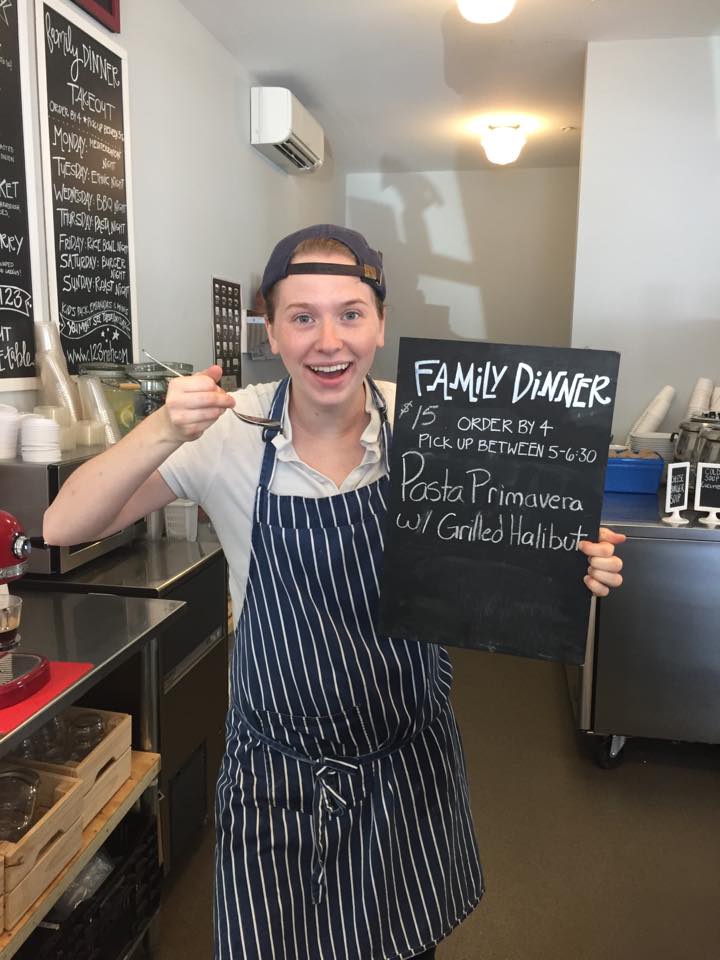 family DINNER
TAKEOUT
ORDER BY 4 * PICK UP BETWEEN 5-6:30
MONDAY: MEDITERRANEAN
NIGHT
TUESDAY: ETHNIC NIGHT
WEDNESDAY: BBQ NIGHT
THURSDAY: PASTA NIGHT
FRIDAY: RICE BOWL NIGHT
SATURDAY: BURGER
NIGHT
SUNDAY: ROAST NIGHT
KID'S PACK, EMPANADAS & MORE
www.123
KET
123
FAMiLY DiNNER
15 ORDER BY 4
PICK UP BETWEEN 5-6:30
Pasta Primavera
w/ Grilled Halibut
SOUP
COLD
SOUP